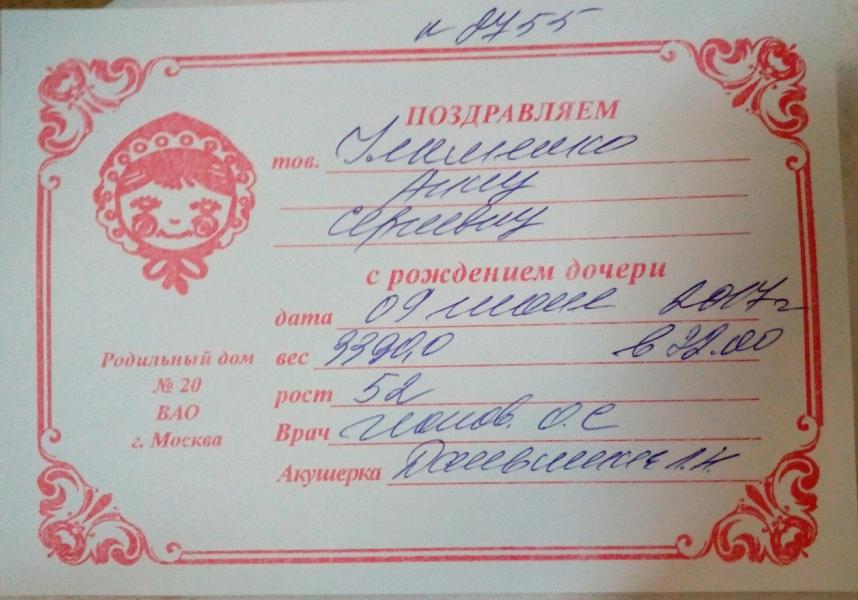 н 8755
ПОЗДРАВЛЯЕМ
тов.
Анну
Сергеевну
с рождением дочери
дата 09 2017г
вес 3390,0 в 22.00
рост 52
Врач О.С
Акушерка
Родильный дом
№ 20
ВАО
г. Москва